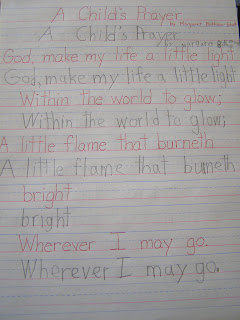 A Child's Prayer
by Margaret
A Child's Prayer
by
God, make my life a little light
God, make my life a little light
Within the world to glow;
Within the world to glow;
A little flame that burneth
A little flame that burneth
bright
bright
Wherever I may go.
Wherever I may go.